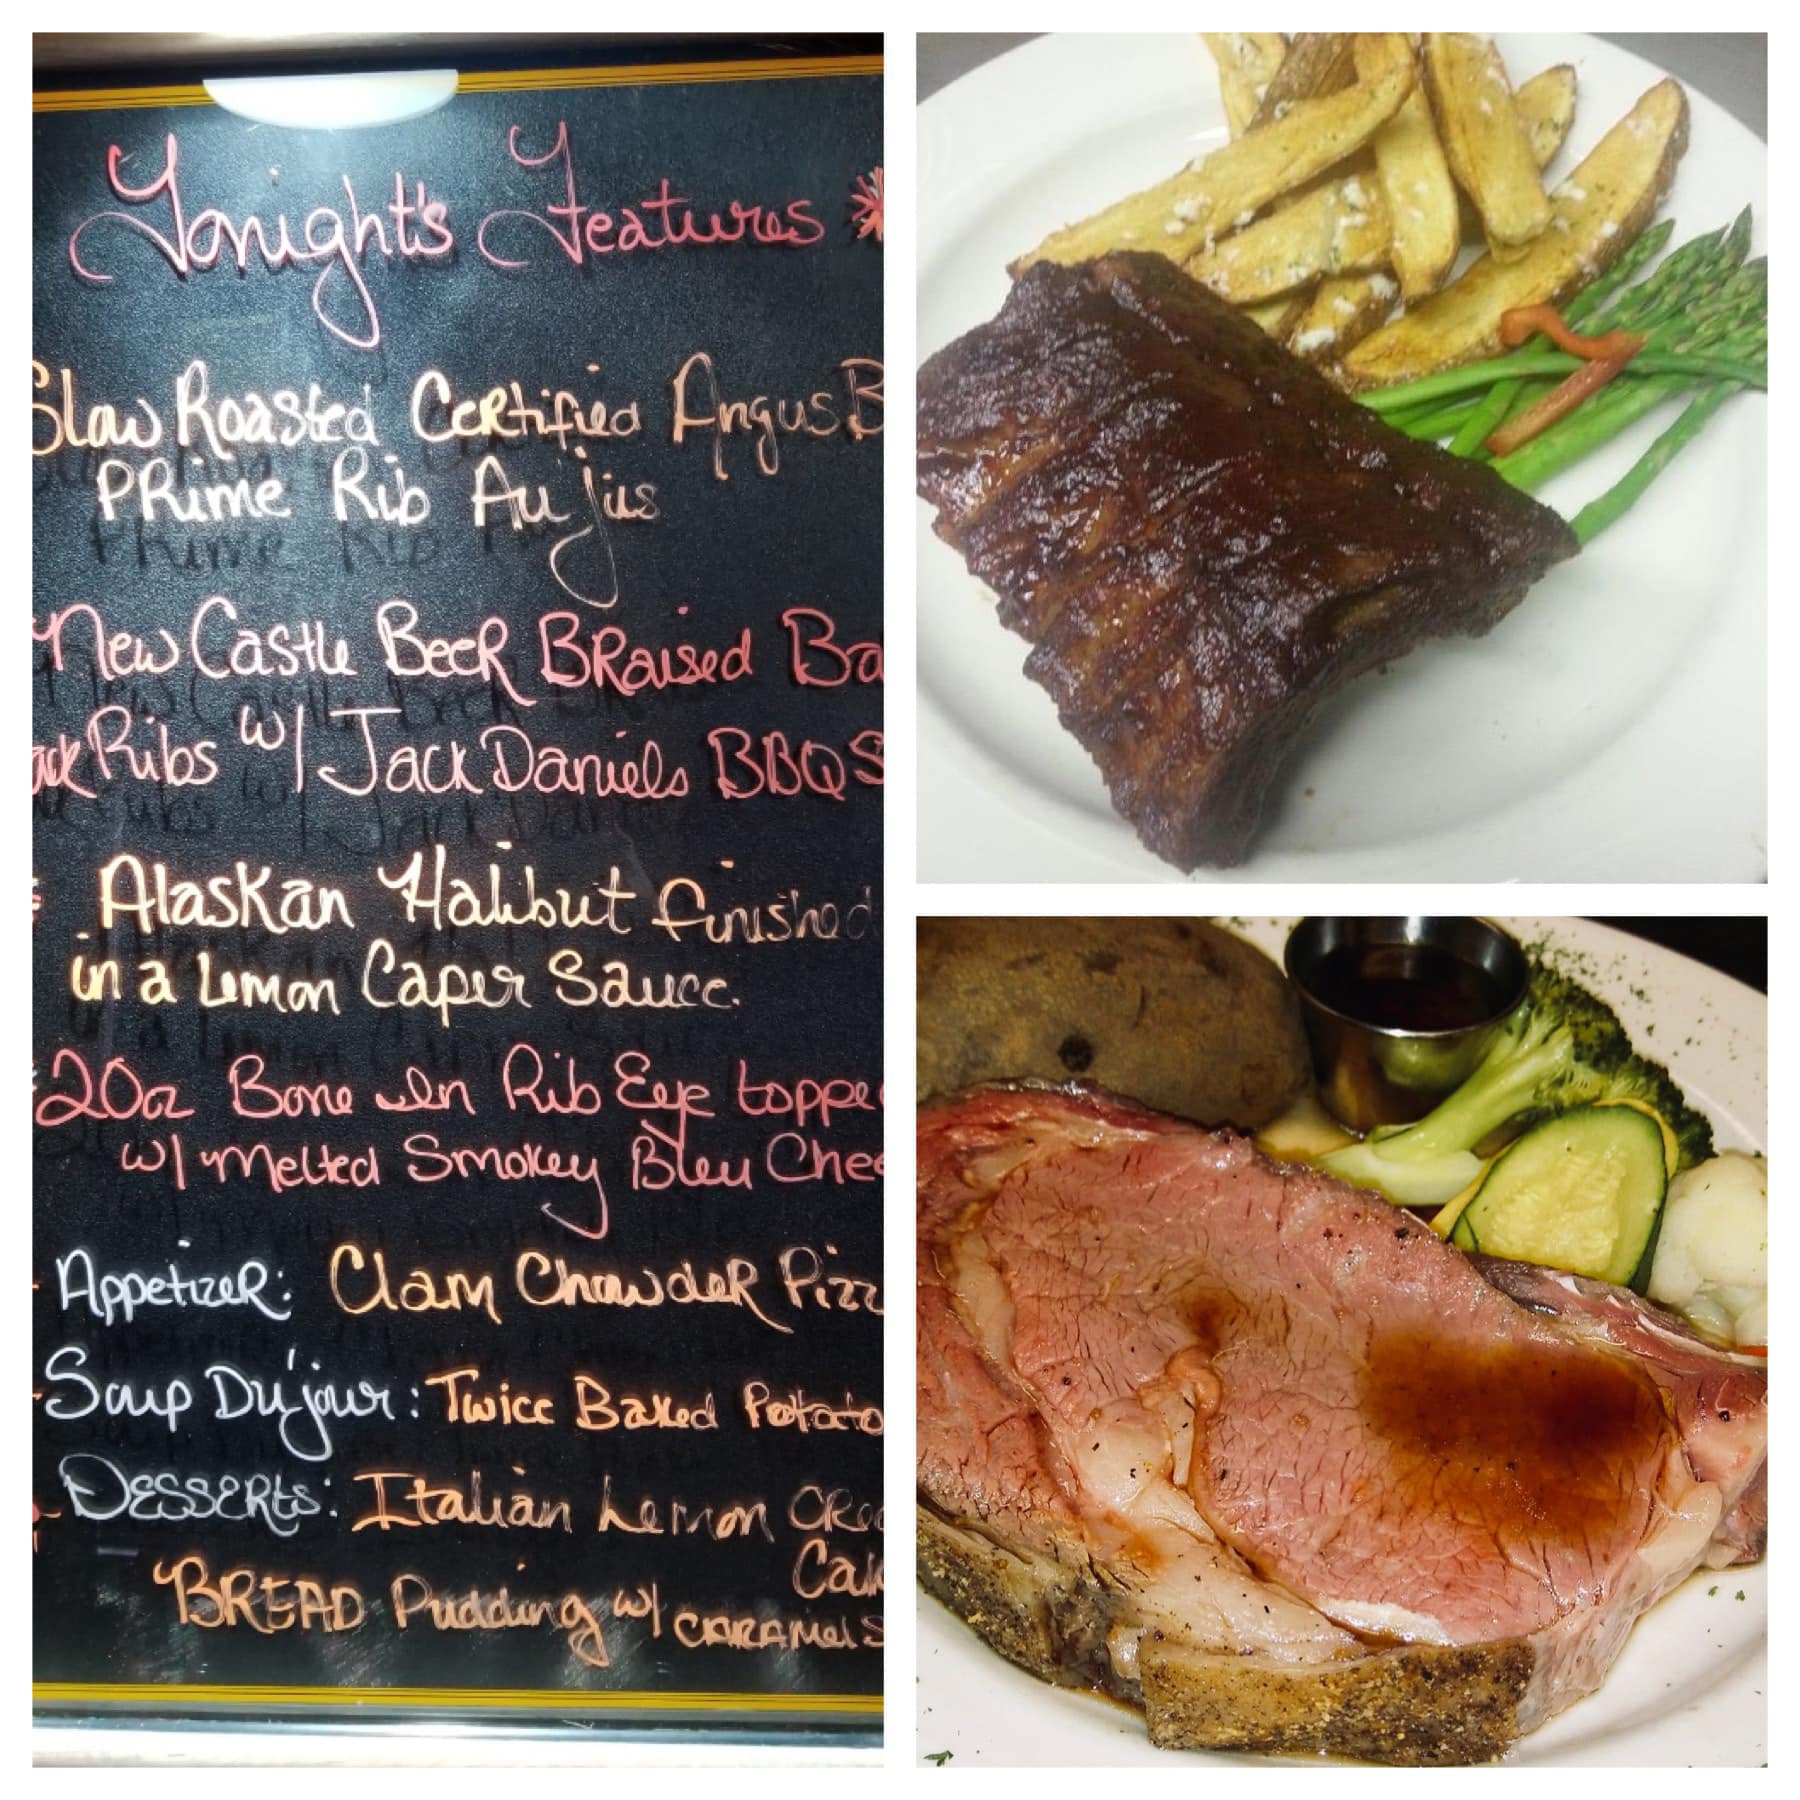 Tonight's Features
Slow Roasted Certified Angus B
PRime Rib Au jus
New Castle Beer BRaised Ba
ack Ribs w/ Jack Daniels BBQ S
Alaskan Halibut finished
in a Lemon Caper Sauce.
20oz Bone In Rib Eye toppe
w/ melted Smokey Bleu Chee
Appetizer: Clam Chowder Pizz
Soup Du'jour: Twice Baked Potato
Desserts: Italian Lemon CRea
Cak
BREAD Pudding w/ CARAMel S